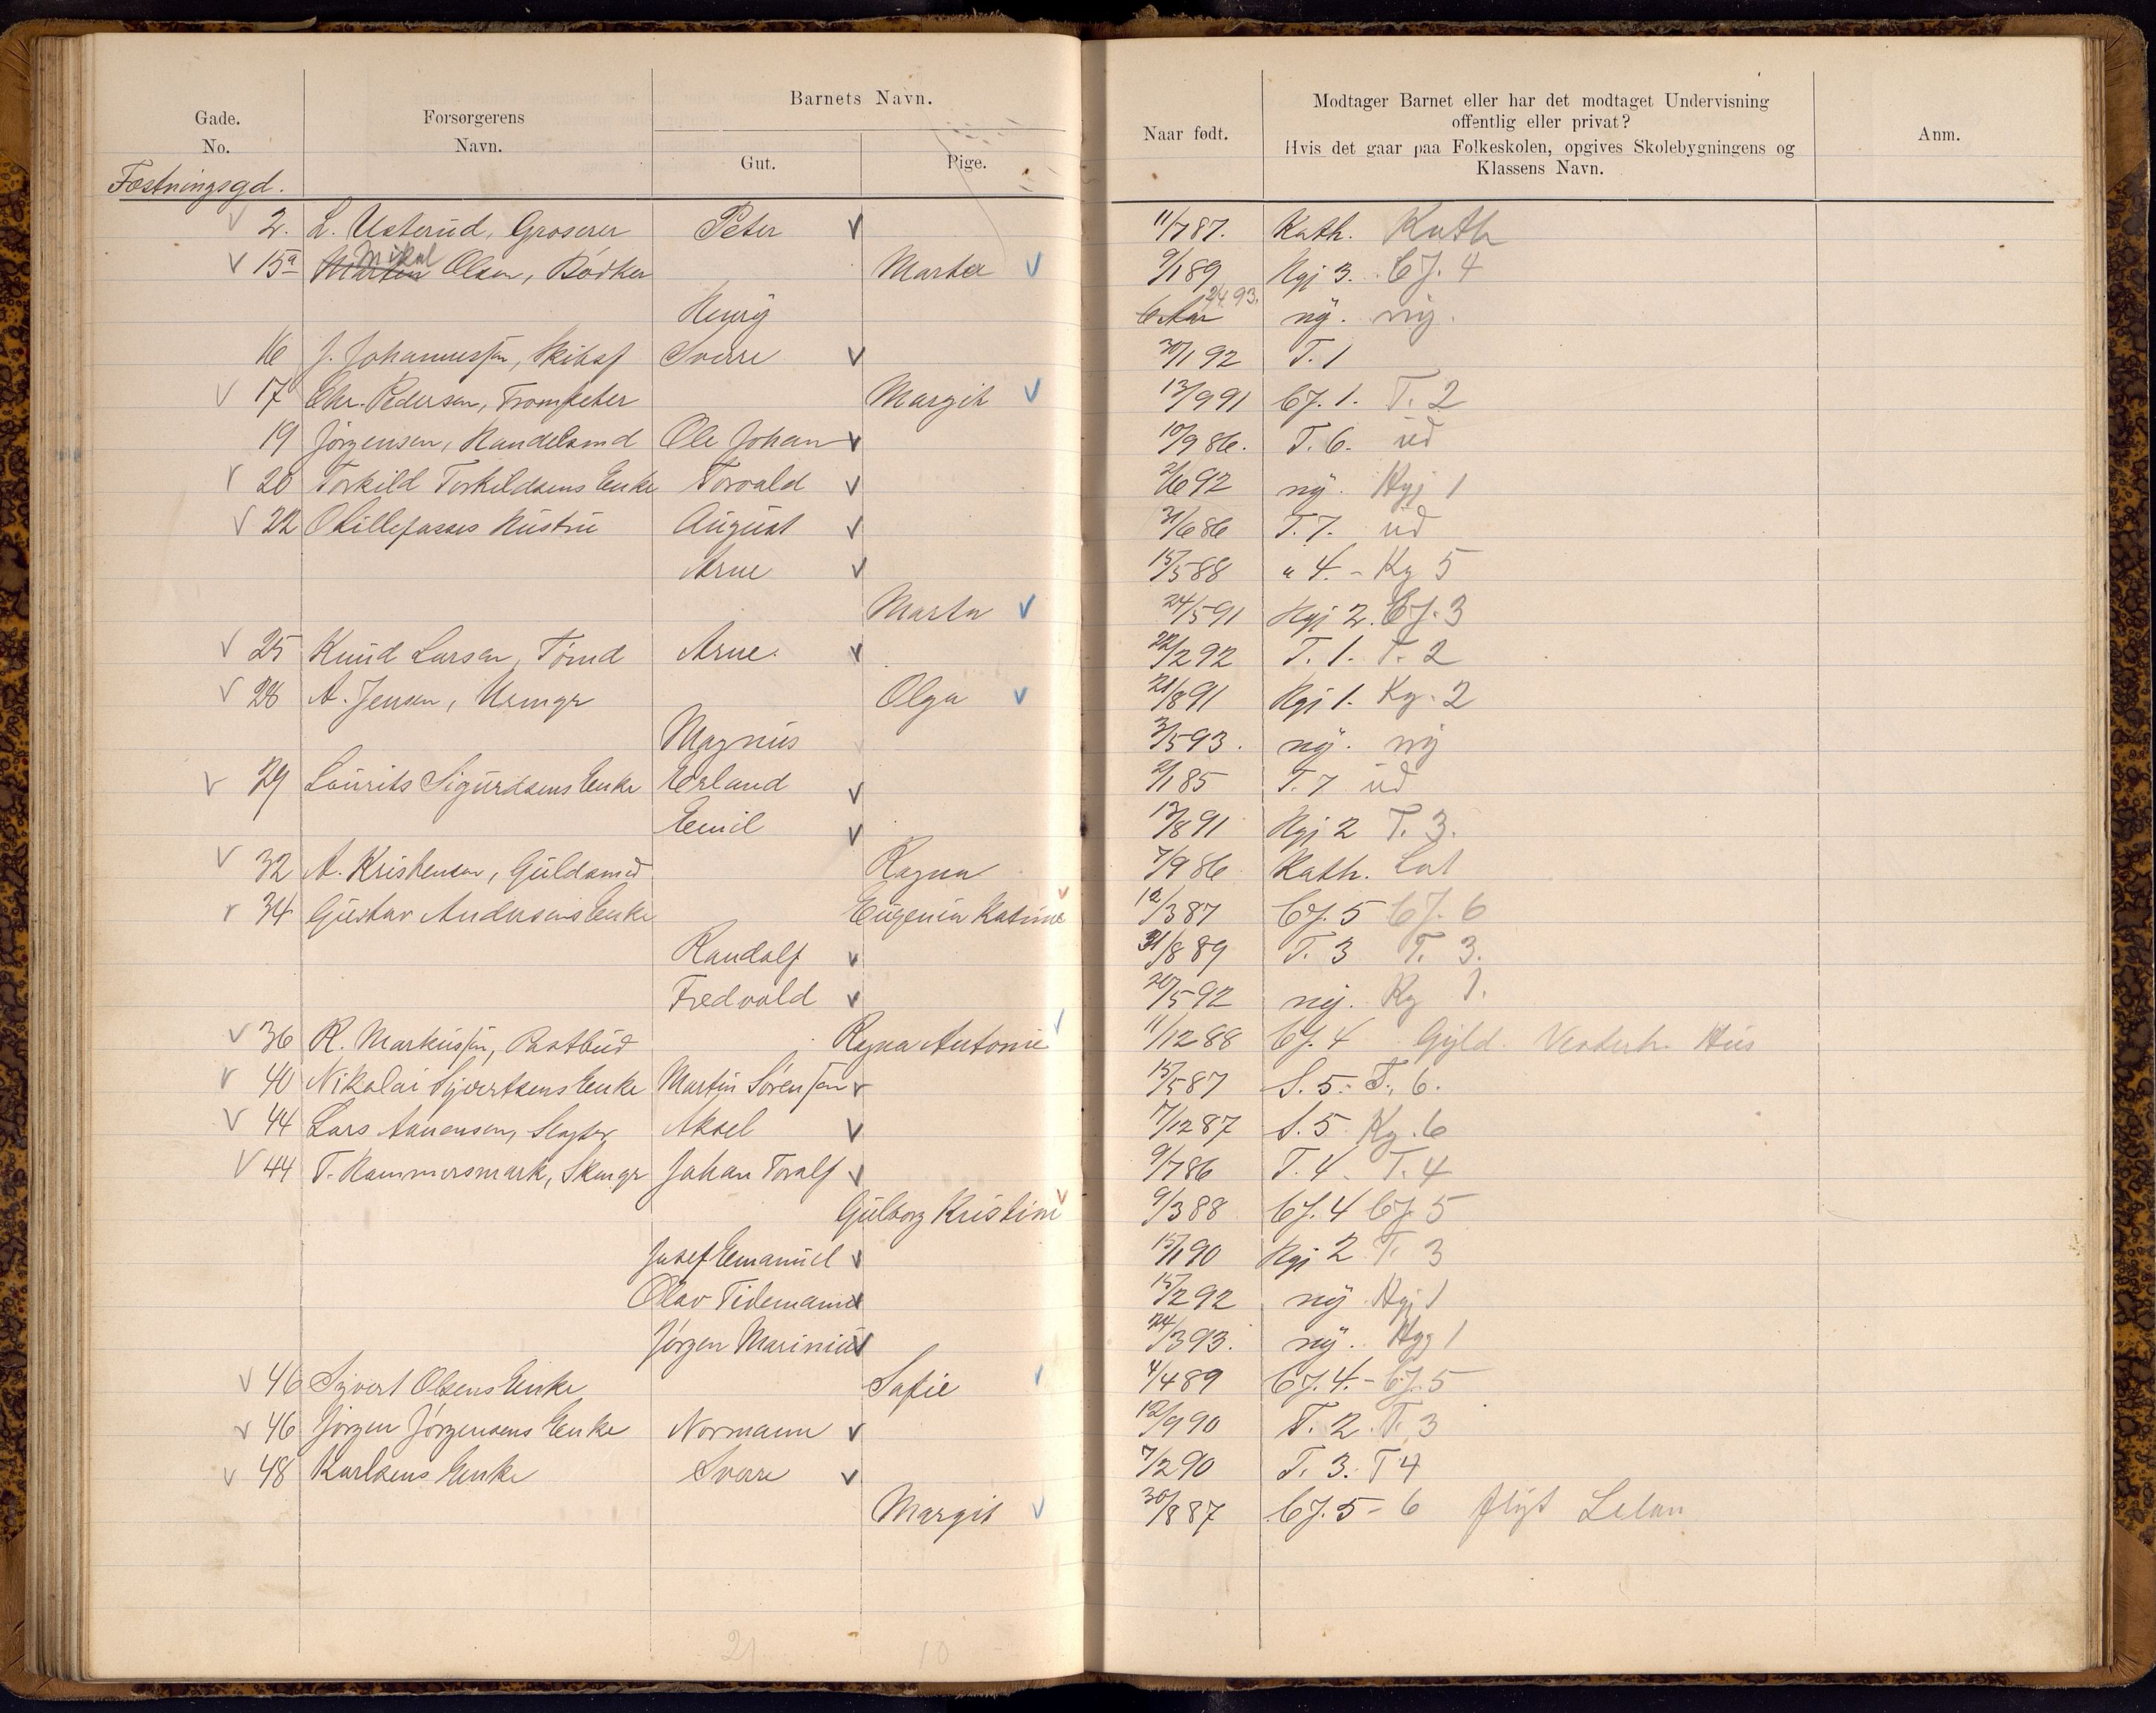 Barnets Navn.
Gade. Forsørgerens
No. Navn. Gut. Pige.
Naar født. Modtager Barnet eller har det modtaget Undervisning
offentlig eller privat? Anm.
Hvis det gaar paa Folkeskolen, opgives Skolebygningens og
Klassens Navn.
Fæstningsgd.
2. L. Usterud, Groserer Peter 11/7 87. Kath. Kath
Mikal
15a Martin Olsen, Bødker Marta 9/1 89 Hgj 3. CJ. 4
24 93.
Henry 6 Aar ny. ny.
16 J. Johannesen, Skibsf Sverre 30/1 92 T. 1
17 Chr. Pedersen, Trompeter Margit 13/9 91 CJ. 1. T. 2
19 Jørgensen, Handelsmd Ole Johan 10/9 86. T. 6. ud
20 Torkild Torkildsens Enke Torvald 2/6 92 ny. Hgj 1
22 Hustru August /6 86 T. 7. ud
Arne 15/5 88 " 4. - Kg 5
Marta 24/5 91 Hgj 2. CJ. 3
25 Knud Larsen, Tømd Arne. 22/2 92 T. 1. T. 2
28 A. Jensen, Urmgr Olga 21/8 91 Hgj 1. Kg. 2
Magnus 3/5 93. ny. ny
29 Lourits Sigurdsens Enke Erland 2/1 85 T. 7 ud
Emil 13/8 91 Hgj 2 T. 3.
32 A. Kristensen, Guldsmed Ragna 7/9 86 Kath. Lat
34 Gustav Andersens Enke Eugenia Katrine 12/3 87 CJ. 5 CJ. 6
Randolf 31/8 89 T. 3 T. 3.
Fredvald 20/5 92 ny. Kg 1.
36 R. Markussen, Postbud Ragna Antonie 11/12 88 CJ. 4 Gyld. Hus
40 Nikolai Syvertsens Enke Martin Sørensen 15/5 87 S. 5. T. 6.
44 Lars Aanensen, Slagter Aksel 7/12 87 S. 5 Kg. 6
44 T. Hammersmark, Skmgr Johan Toralf 9/7 86 T. 4 - T. 4
Gulborg Kristine 9/3 88 CJ. 4 CJ. 5
Josef Emanuel 15/1 90 Hgj 2 T. 3
Olav Tidemand 15/2 92 ny Hgj 1
Jørgen Marinius 24/3 93. ny. Hgj 1
46 Syvert Olsens Enke Sofie 4/4 89 CJ. 4. - CJ. 5
46 Jørgen Jørgensens Enke Normann 12/9 90 T. 2. T. 3
48 Karlsens Enke Sverre 7/2 90 T. 3. T 4
Margit 30/8 87 CJ. 5 - 6 flyt
21 10